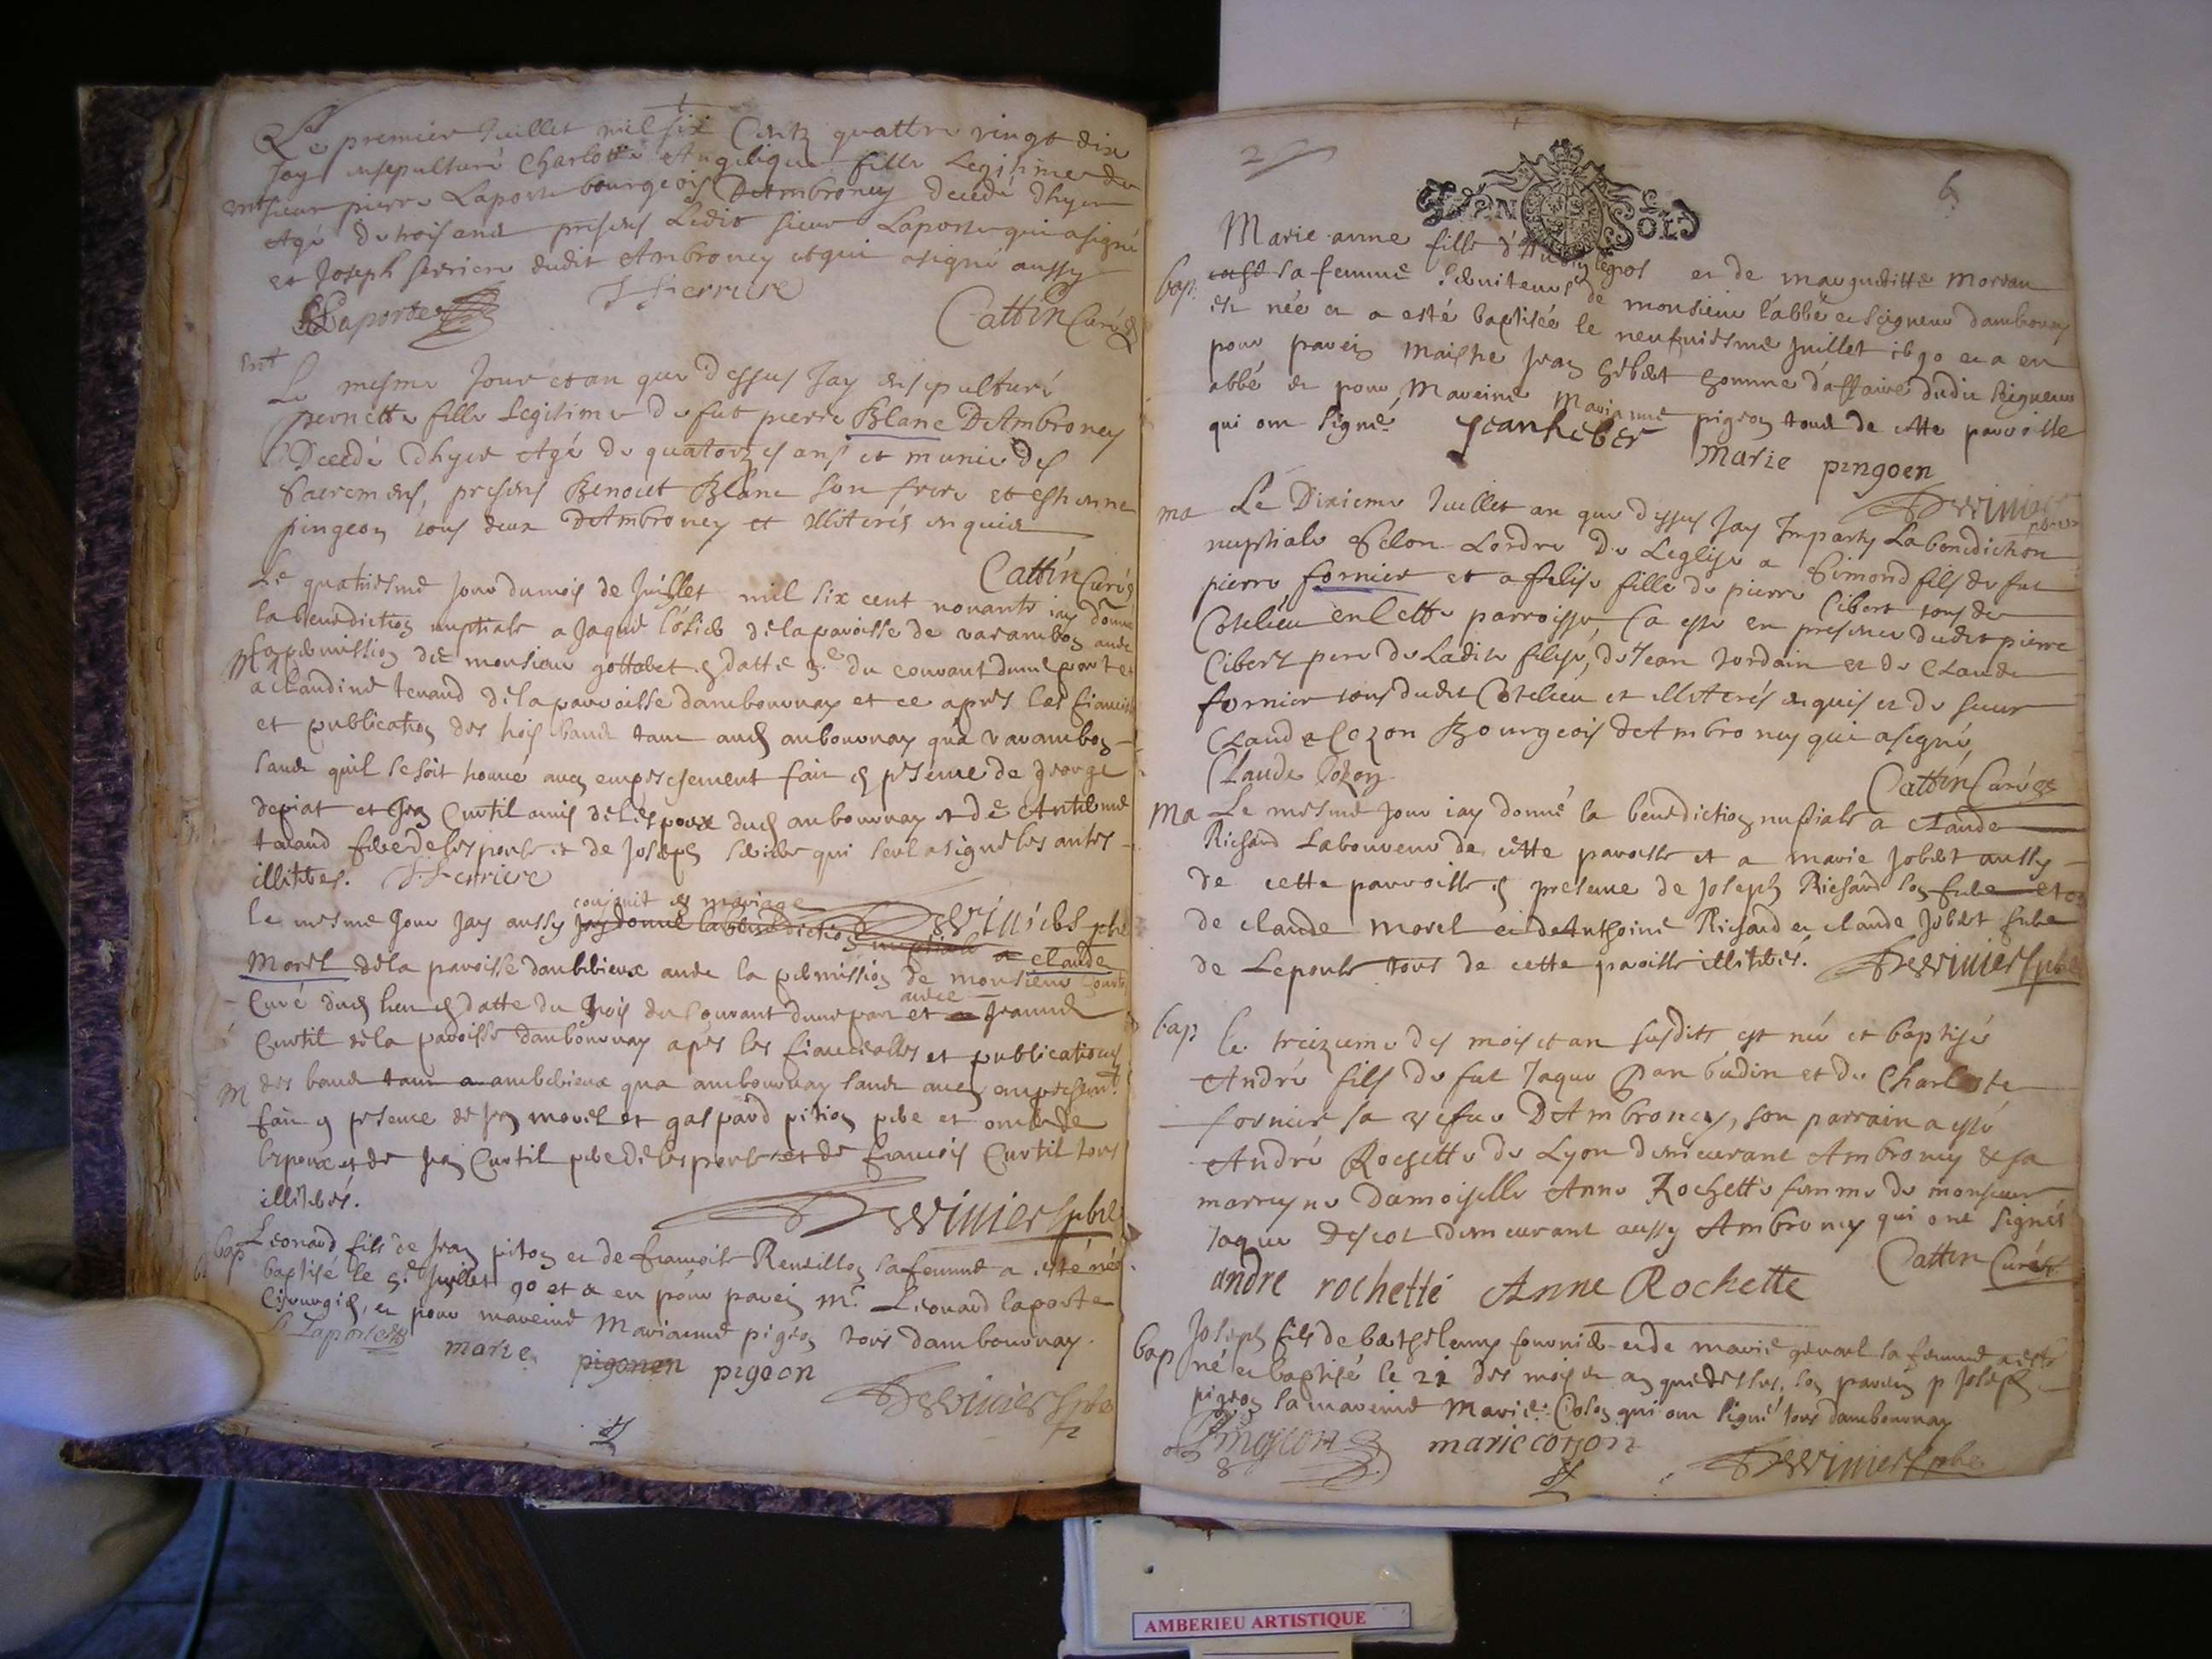 Le premier Juillet mil six Centz quattre vingt dix
Jay ensepulturé Charlotte Angelique fille Legitime de
ent sieur pierre Laporte bourgeois DeAmbroney decedé dhyer
Agé de trois ans presens Ledit sieur Laporte qui a signé
et Joseph ferriere dudit Ambroney et qui a signé aussy
Laporte J ferriere
Cattin Curé
ent Le mesme Jour et an que dessus Jay ensepulturé
pernette fille Legitime de fut pierre Blanc DeAmbroney
Decedé dhyer Agé de quatorzes ans et munie des
Sacremens, presens Benoict Blanc son frere et Estienne
pingeon tous deux DeAmbroney et Illiterés enquis
Cattin Curé
Le quatriesme Jour du mois de Juillet mil six cent nonante iay donné
la benediction nuptiale a Jaque de la paroisse de varambon avec
la permission de monsieur en datte 3.e du courant dune part et
M a Claudine tenand de la parroisse dambournay et ce apres les
et publication des trois bancs tant aud ambournay qua varambon
sans quil se soit trouvé aucun empeschement fait en presence de george
depiat et Jean Curtil amis de lespoux dud ambournay et de Antoine
tenand frere de lespouse et de Joseph qui seul a signé les autres
illiteres. J. ferriere
conjoint en mariage
le mesme Jour Jay aussy Jay donné la benediction nuptiale a Claude
Dervinier pbre
Morel de la paroisse dambérieux avec la permission de monsieur
Curé dud lieu en datte du trois du Courant dune part et a avec Jeanne
Curtil de la paroisse dambournay apres les fiancialles et publications
M des bancs tant a ambérieux qua ambournay sans aucun empeschemt
fait en presence de Jean morel et gaspard pition pere et oncle de
lespoux et de Jean Curtil pere de lespouse et de francois Curtil tous
illiterés.
Dervinier pbre
bap Leonard fils de Jean piton et de francoise Reveillon sa femme a esté né
baptisé le 5.e Juillet 90 et a eu pour parein M.r Leonard laporte
Cirurgien, et pour mareine Marianne pigeon tous dambournay.
Laporte marie pigonen pigeon
Dervinier pbre
2 6
GEN SOLS
Marie anne fille d'Antoine legros et de margueritte moreau
bap sa femme serviteurs de monsieur labbé et seigneur dambournay
est née et a esté baptisée le neufviesme Juillet 1690 et a eu
pour parein maistre Jean hebert homme d'affaire dudit seigneur
abbé et pour Mareine Marianne pigeon tous de cette paroisse
qui ont signé. Jean heber marie pingoen
Dervinier pbre
ma Le Dixieme Juillet an que dessus Jay Imparty La benediction
nuptiale Selon Lordre de Leglise a Simond fils de fut
pierre fornier et a felise fille de pierre Cibert tous de
Cotelieu en cette parroisse, Ca esté en presence dudit pierre
Cibert pere de Ladite felise, de Jean Jordain et de Claude
fornier tous dudit Cotelieu et illiterés enquis et de sieur
Claude Cozon Bourgeois deAmbroney qui a signé
Claude Cozon
Cattin Curé
Ma Le mesme Jour iay donné la benediction nuptiale a Claude
Richard Laboureur de cette paroisse et a marie Jobert aussy
de cette parroisse en presence de Joseph Richard son frere et
de claude morel et de Anthoine Richard et claude Jobert frere
de Lepouse tous de cette paroisse illiterés. Dervinier pbre
bap le treizieme des mois et an susdits est né et baptisé
André fils de fut Jaque Panbudin et de Charlotte
fornier sa vefve DeAmbroney, son parrain a esté
André Rochette de Lyon demeurant Ambroney & sa
marreyne damoiselle Anne Rochette femme de monsieur
Jaque Descot demeurant aussy Ambroney qui ont signés
Cattin Curé
andre rochette Anne Rochette
Joseph fils de barthelemy fournier et de marie sa femme a esté
bap né et baptisé le 21 des mois et an que dessus, son parein Joseph
pigeon sa mareine Marie Coson qui ont signé tous dambournay
Pingeon marie cozon
Dervinier pbre
AMBERIEU ARTISTIQUE